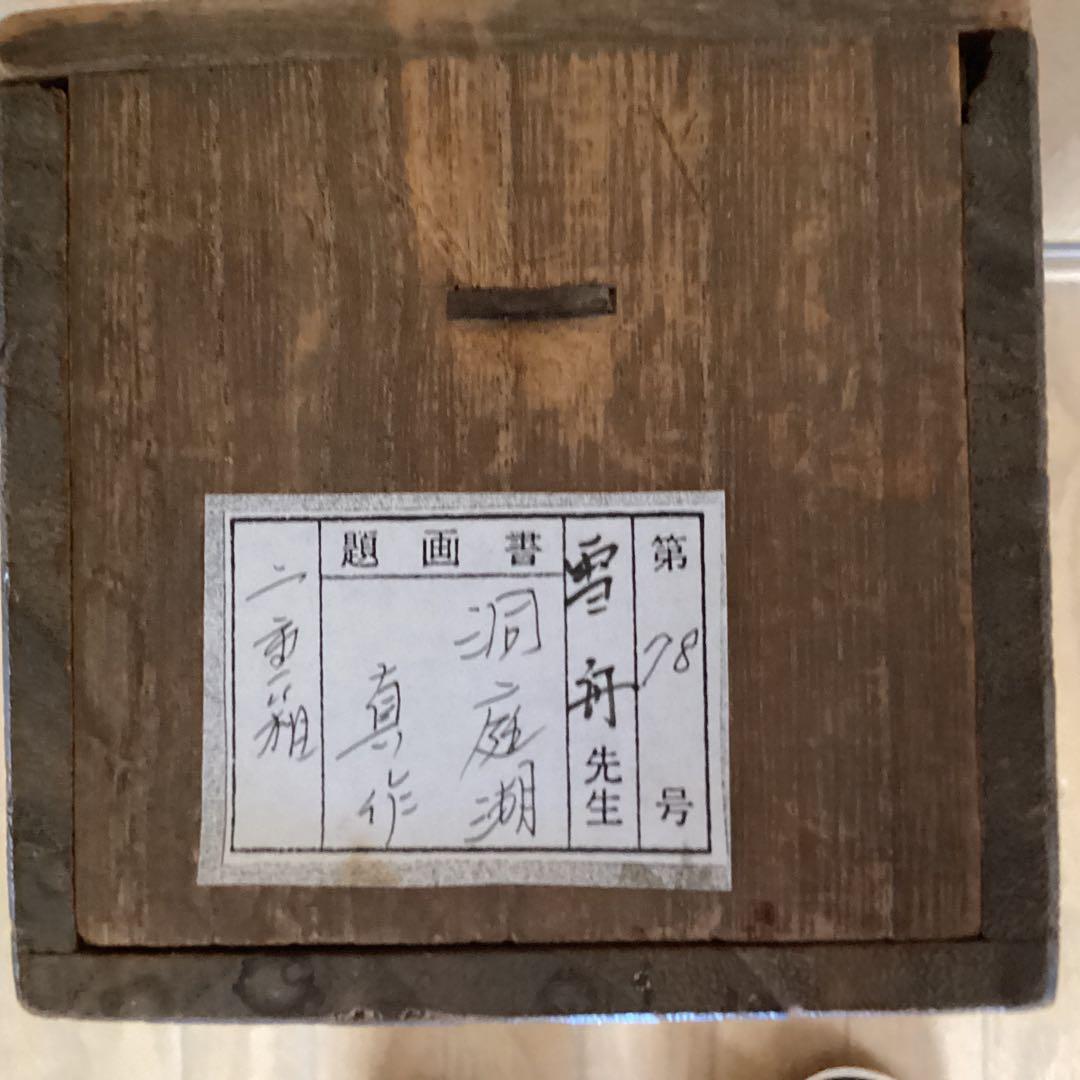 第78号
雪舟先生
書画題
洞庭湖
真作
二重箱